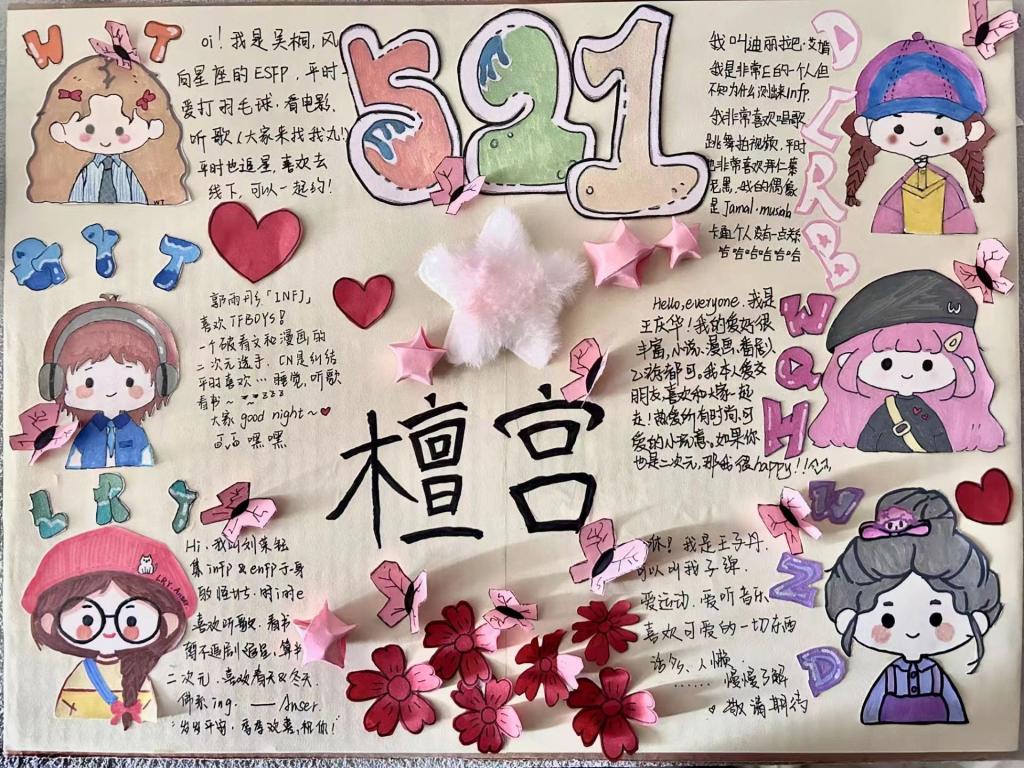 WT
oi！我是吴桐，风
向星座的ESFP，平时
爱打羽毛球，看电影，
听歌（大家来找我丸！）
平时也追星，喜欢去
线下，可以一起约！
WT
521
DLRB
我叫迪丽拉巴·艾
我是非常E的一个人但
不知为什么测出来infp.
我非常喜欢唱歌
跳舞拍视频，平时
也非常喜欢
我的偶像
是Jamal·musiala
哈哈哈哈哈哈哈
GYT
郭雨彤「INFJ」
喜欢TFBOYS！
一个破看文和漫画的
二次元选手，CN是纠结
平时喜欢…睡觉，听歌
看书～ zzz
大家 good night～
嘿嘿
檀宫
WQH
Hello, everyone, 我是
王庆华！我的爱好很
丰富，小说、漫画、番剧、
乙游都可。我本人爱交
朋友，喜欢和大家一起
走！热爱所有时尚、可
爱的小玩意。如果你
也是二次元，那我很happy!!
W
LRY
Hi，我叫刘
集infp & enfp于一身
时i时e
喜欢听歌、看书
二次元，喜欢春天&冬天.
佛系ing. —— Anser.
岁岁平安，祝你！
LRY.Anser
WZD
我是王子丹.
可以叫我子弹.
爱运动，爱听音乐
喜欢可爱的一切东西
话多，人懒
……慢慢了解
敬满期待